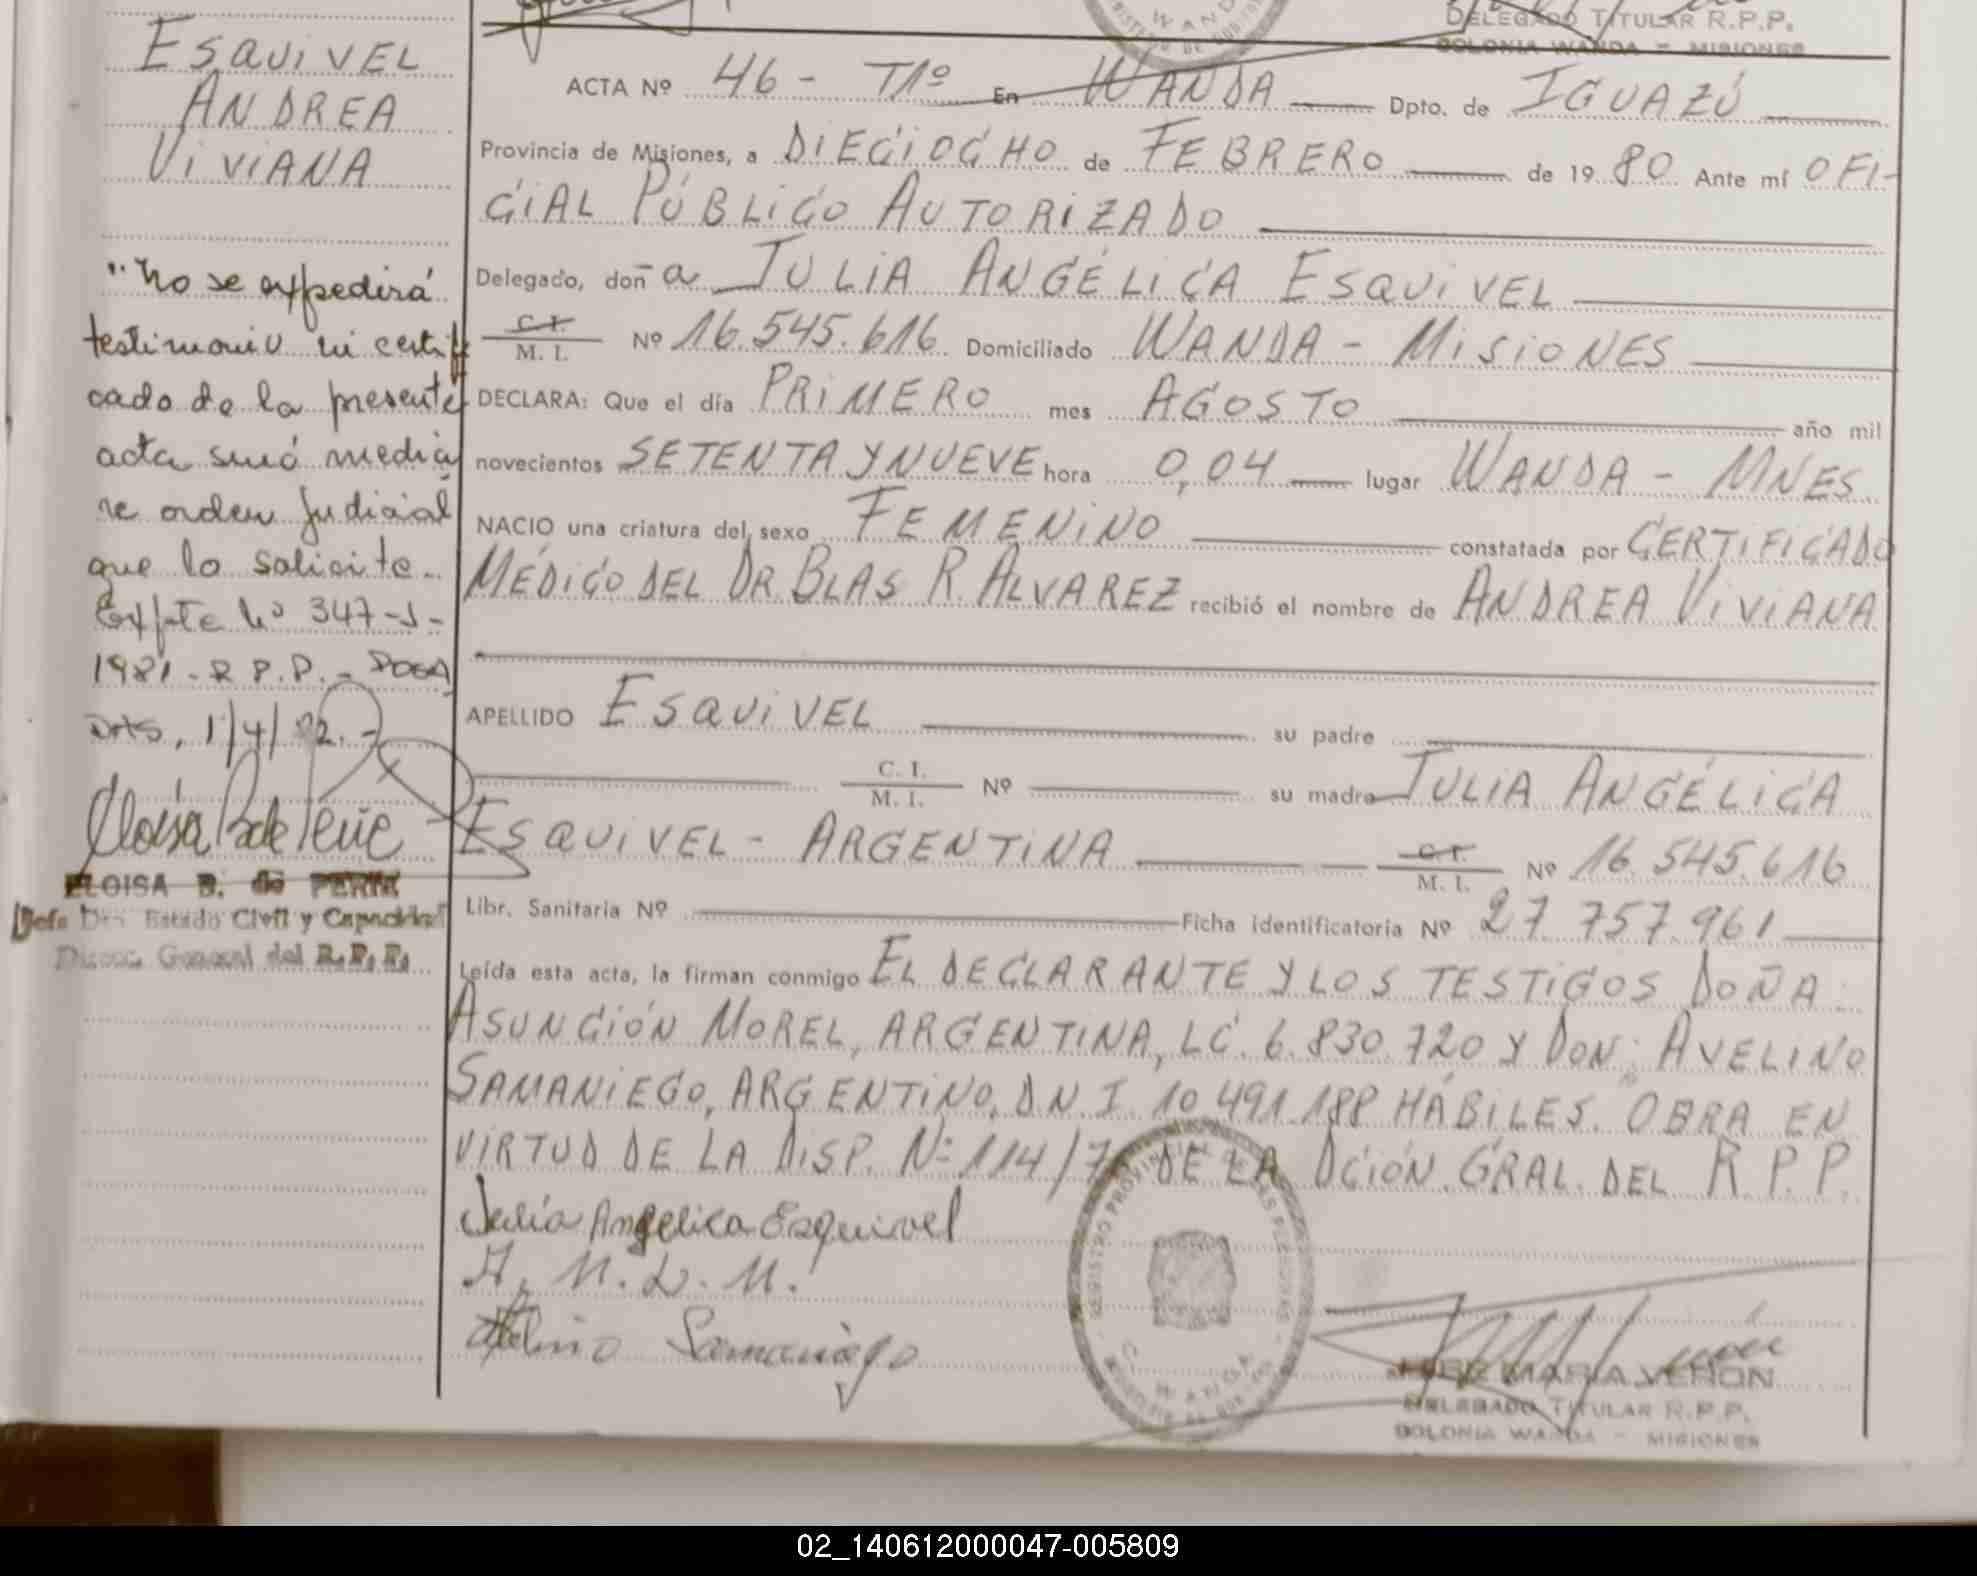 DELEGADO TITULAR R.P.P.
COLONIA WANDA - MISIONES
ESQUIVEL
ANDREA
VIVIANA
"No se expedirá
testimonio ni certifi
cado de la presente
acta sinó median
te orden Judicial
que lo solicite.-
Expte Nº 347-J-
1981- R.P.P.-
1/4/82.-
ELOISA B. de PERIE
Jefe Estado Civil y Capacidad
Direcc. General del R.P.P.
ACTA Nº 46 - T1º En WANDA Dpto. de IGUAZÚ
Provincia de Misiones, a DIECIOCHO de FEBRERO de 1980 Ante mí OFI-
CIAL PÚBLICO AUTORIZADO
Delegado, doña JULIA ANGÉLICA ESQUIVEL
C. I.
M. I. Nº 16.545.616 Domiciliado WANDA - MISIONES
DECLARA: Que el día PRIMERO mes AGOSTO año mil
novecientos SETENTA Y NUEVE hora 0,04 lugar WANDA - MNES.
NACIO una criatura del sexo FEMENINO constatada por CERTIFICADO
MÉDICO DEL DR BLAS R. ALVAREZ recibió el nombre de ANDREA VIVIANA
APELLIDO ESQUIVEL su padre
C. I.
M. I. Nº su madre JULIA ANGÉLICA
ESQUIVEL - ARGENTINA C. I.
M. I. Nº 16.545.616
Libr. Sanitaria Nº Ficha identificatoria Nº 27.757.961
Leída esta acta, la firman conmigo EL DECLARANTE Y LOS TESTIGOS DOÑA:
ASUNCIÓN MOREL, ARGENTINA, LC. 6.830.720 Y DON: AVELINO
SAMANIEGO, ARGENTINO, D.N.I. 10.491.188 HÁBILES. OBRA EN
VIRTUD DE LA DISP. Nº 114/7 DE LA DCIÓN. GRAL. DEL R.P.P.
Julia Angelica Esquivel
Samaniego
REGISTRO PROVINCIAL DE LAS PERSONAS
WANDA
JOSE MARIA VERON
DELEGADO TITULAR R.P.P.
COLONIA WANDA - MISIONES
02_140612000047-005809